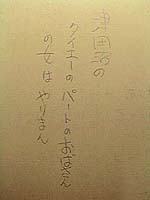 津田沼の
クイエーのパートのおばさん
の女はやりまん